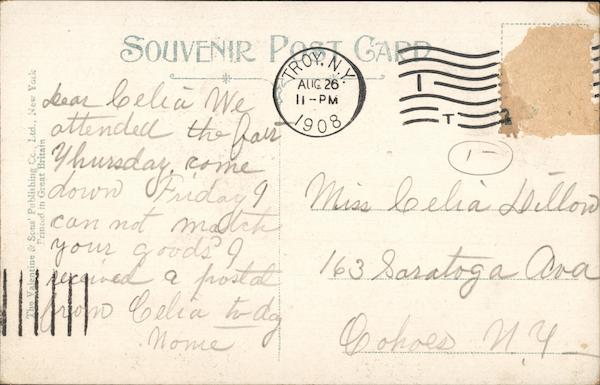 SOUVENIR POST CARD
TROY, N.Y.
AUG 26
11-PM
1908
1
T 2
The Valentine & Sons' Publishing Co., Ltd., New York
Printed in Great Britain
Dear Celia We
attended the fair
Thursday come
down Friday I
can not match
your goods I
received a postal
from Celia to-dy
Nome
1
Miss Celia Dillon
163 Saratoga Ava
Cohoes N.Y.